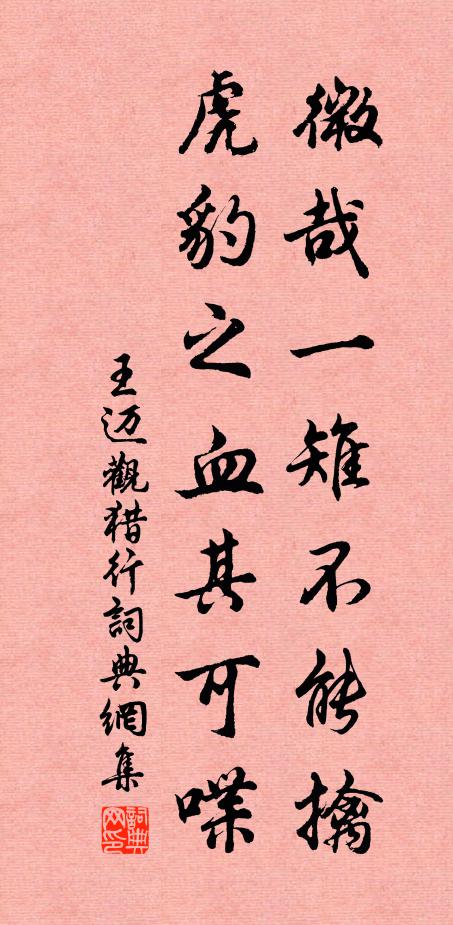 微哉一雉不能擒
虎豹之血其可喋
王迈觀猎行詞典網集
詞典网印